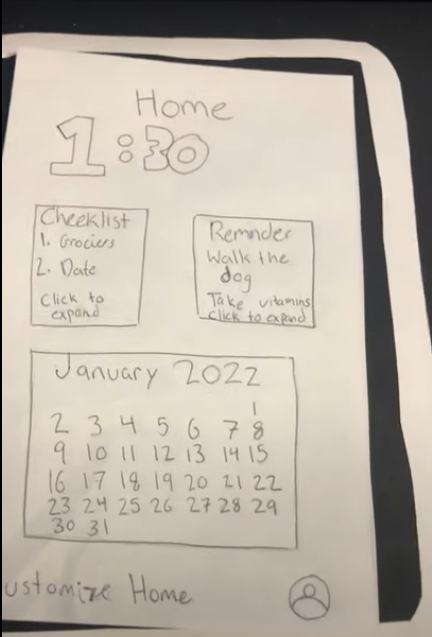 Home
1:30
Checklist
1. Grociers
2. Date
Click to
expand
Remnder
Walk the
dog
Take vitamins
Click to expand
January 2022
1
2 3 4 5 6 7 8
9 10 11 12 13 14 15
16 17 18 19 20 21 22
23 24 25 26 27 28 29
30 31
ustomize Home